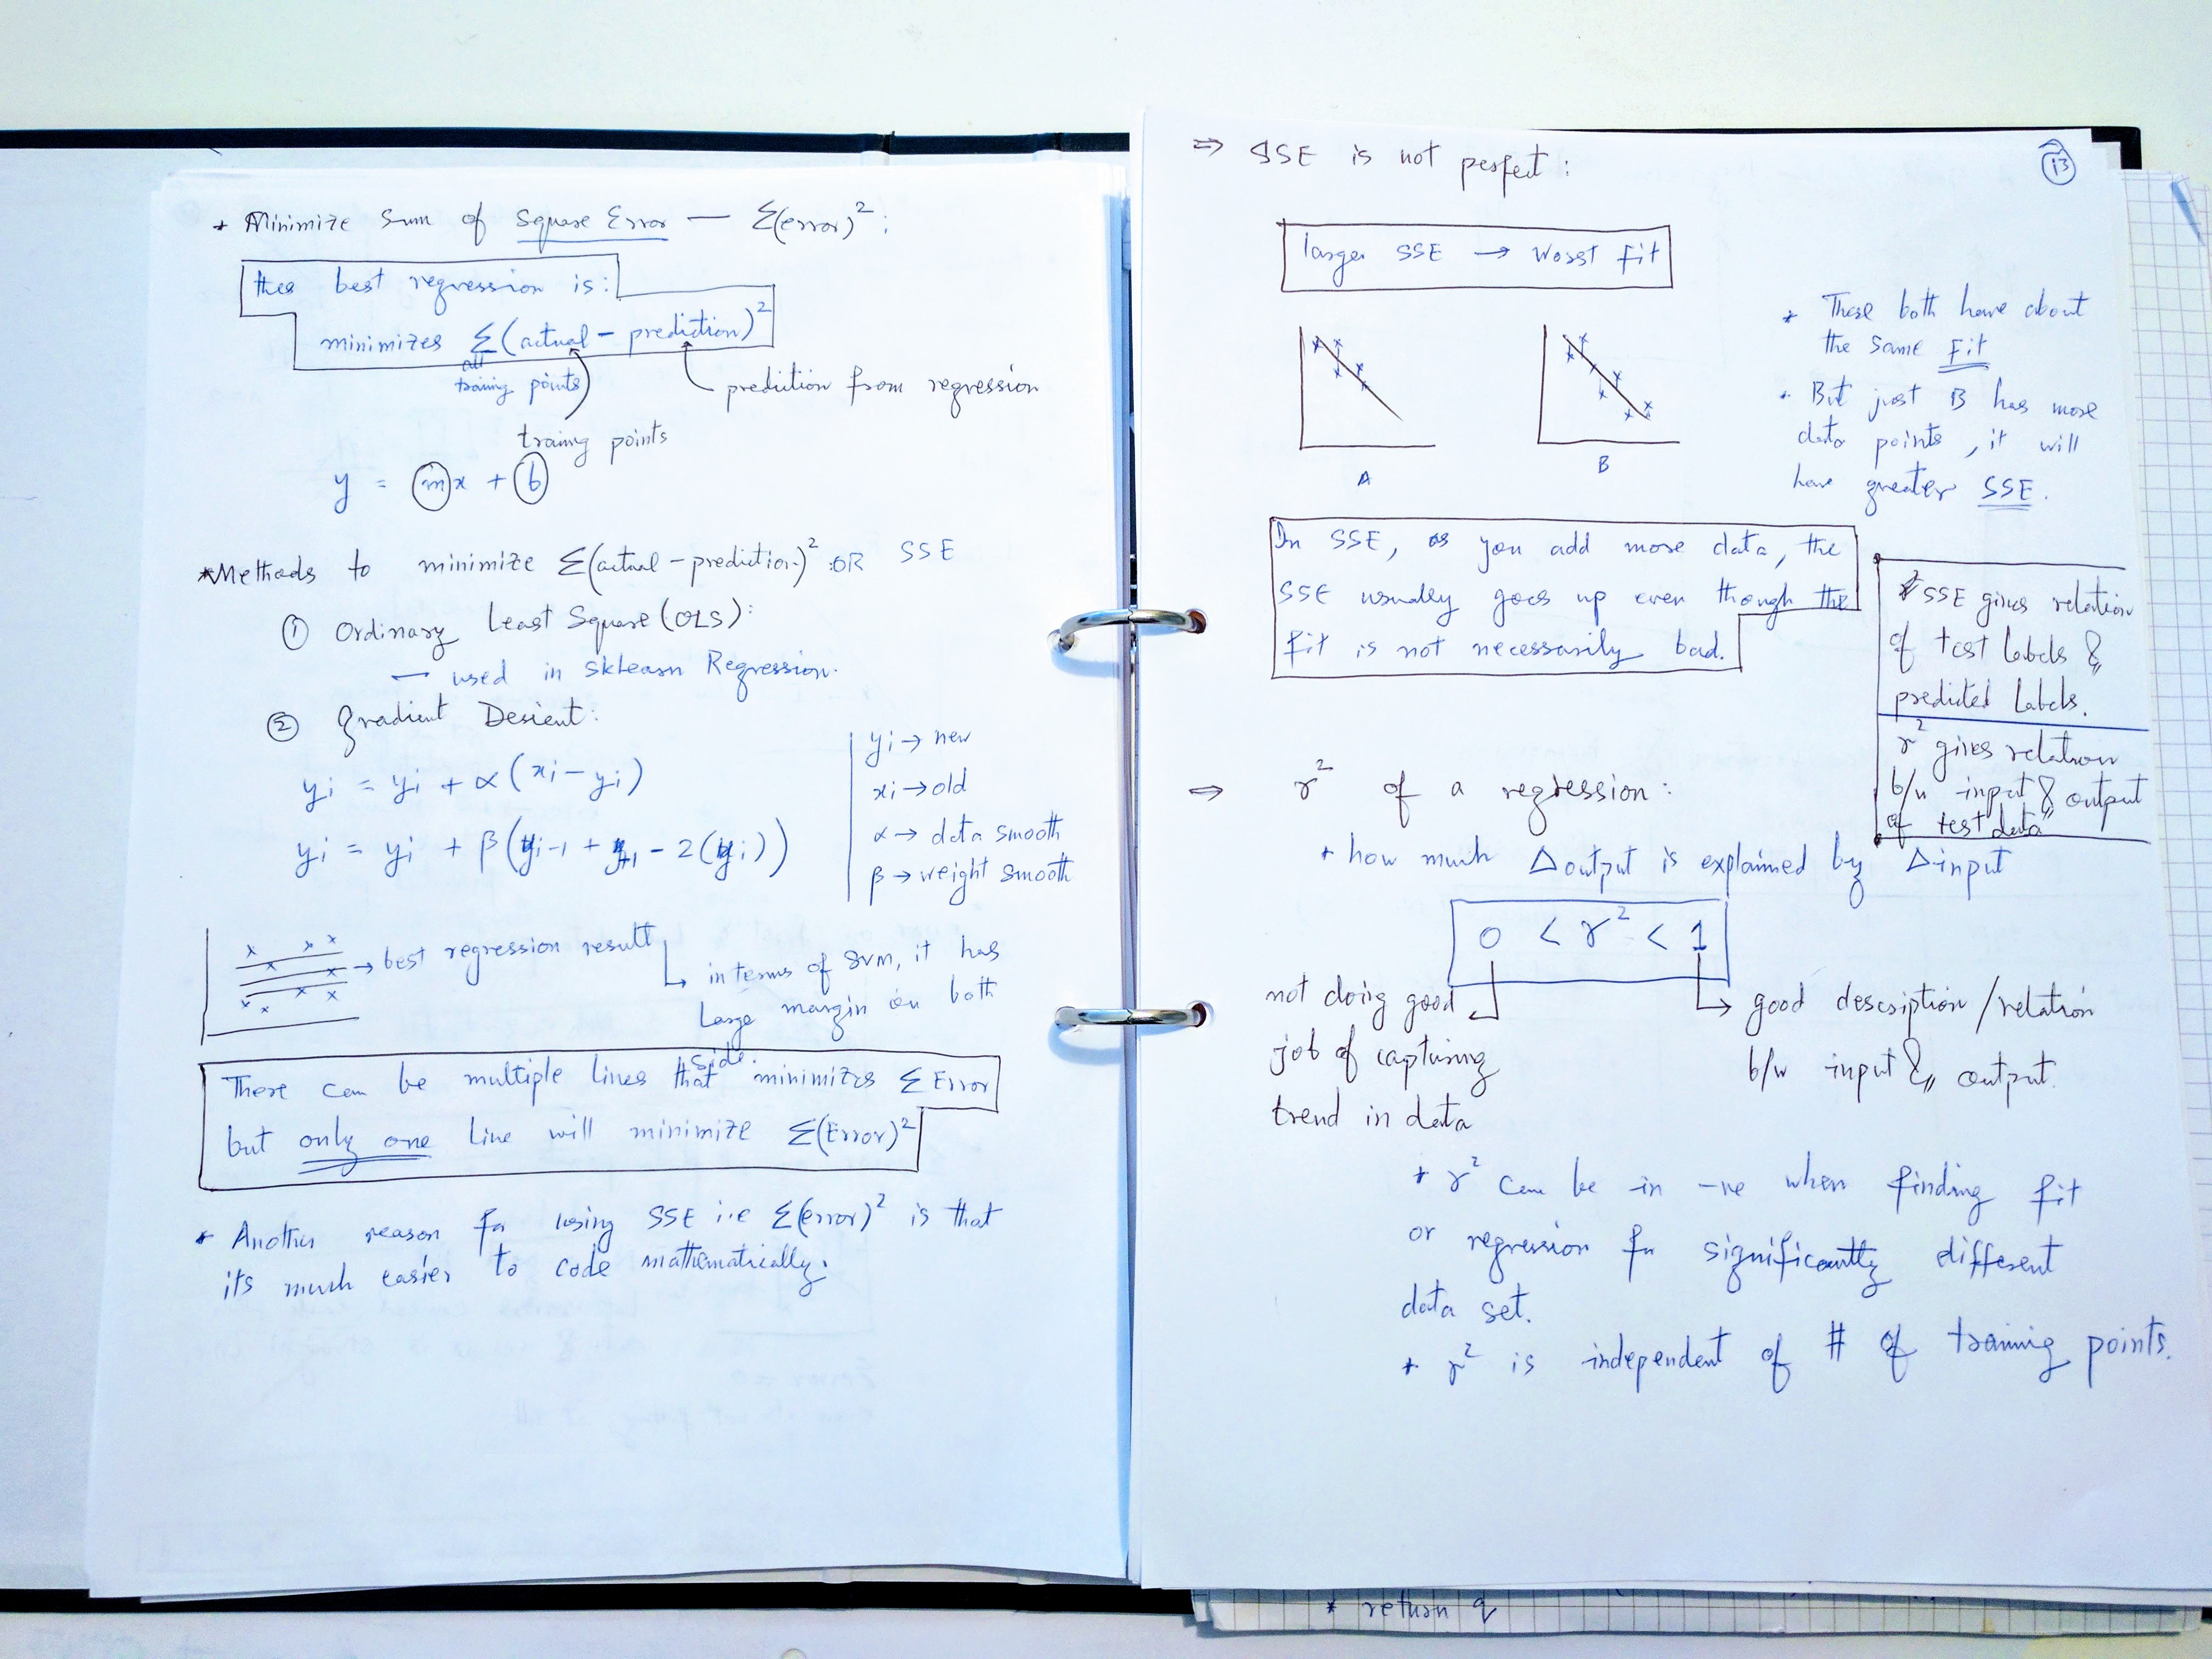 * Minimize Sum of Square Error — Σ(error)²:
thes best regression is:
minimizes Σ(actual - prediction)²
all
training points
prediction from regression
traing points
y = mx + b
*Methods to minimize Σ(actual - prediction)² :OR SSE
① Ordinary Least Square (OLS):
— used in sklearn Regression.
② Gradient Desient:
yi = yi + α(xi - yi)
yi = yi + β(yi-1 + yi+1 - 2(yi))
yi → new
xi → old
α → data smooth
β → weight smooth
→ best regression result
in terms of SVM, it has
Large margin on both
side.
There can be multiple lines that minimizes Σ Error
but only one line will minimize Σ(Error)²
* Another reason for using SSE i.e Σ(error)² is that
its much easier to code mathematically.
⇒ SSE is not perfect:
13
larger SSE → Worst Fit
A
B
* These both have about
the same Fit
* But just B has more
data points, it will
have greater SSE.
In SSE, as you add more data, the
SSE usually goes up even though the
fit is not necessarily bad.
SSE gives relation
of test labels &
predicted Labels.
r² gives relation
b/w input & output
of test data
⇒ r² of a regression:
* how much Δoutput is explained by Δinput
0 < r² < 1
not doing good
job of capturing
trend in data
good description/relation
b/w input & output.
* r² can be in -ve when finding fit
or regression for significantly different
data set.
* r² is independent of # of training points.
* return q